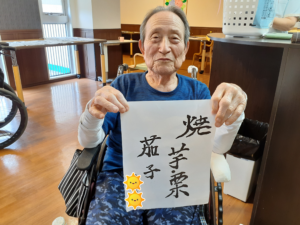 焼芋栗
茄子